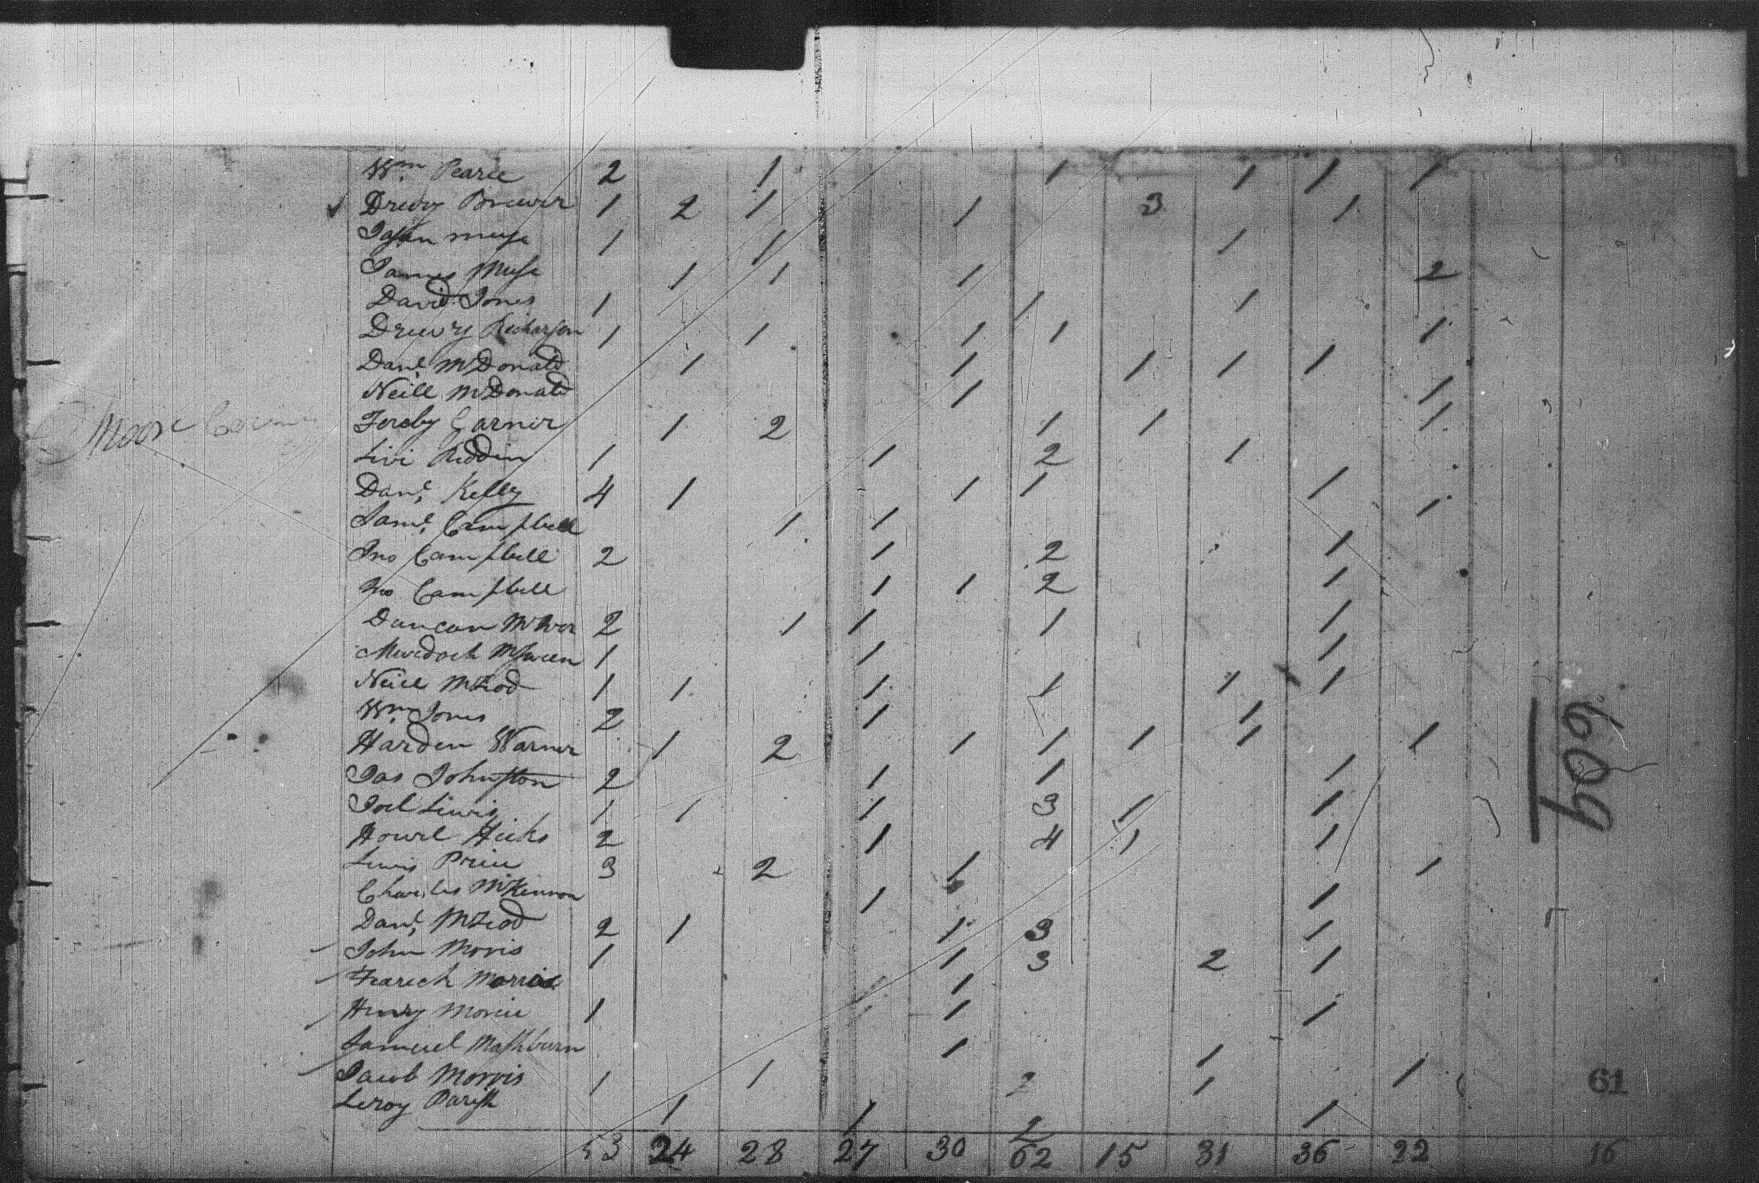 Wm Pearce 2 1 1 1 1 1
Drewry Brewer 1 2 1 1 3 1
Jason Muse 1 1 1
James Muse 1 1 1 2
David Jones 1 1 1
Drewry Richarson 1 1 1 1 1
Danl McDonald 1 1 1 1 1
Neill McDonald 1 1
Foreby Garner 1 2 1 1 1
Moore County
Levi Riddin 1 1 2 1
Danl Kelly 4 1 1 1 1
Saml Campbell 1 1 1
Jno Campbell 2 1 2 1
Jno Campbell 1 1 2 1
Duncan McIver 2 1 1 1 1
Murdoch McSween 1 1 1
Neill McLeod 1 1 1 1 1 1
Wm Jones 2 1 1
Harden Warner 1 2 1 1 1 1 1
609
Jas Johnston 2 1 1 1
Joel Lewis 1 1 1 3 1 1
Howel Hicks 2 1 4 1 1
Lewis Price 3 2 1 1
Charles McKennon 1 1
Danl McLeod 2 1 1 3 1
John Morris 1 1 3 2 1
1
Henry Morris 1 1 1
Samuel Mashburn 1 1
Jacob Morris 1 1 2 1 1
61
Leroy Parish 1 1 2 1
53 24 28 27 30 62 15 31 36 22
16